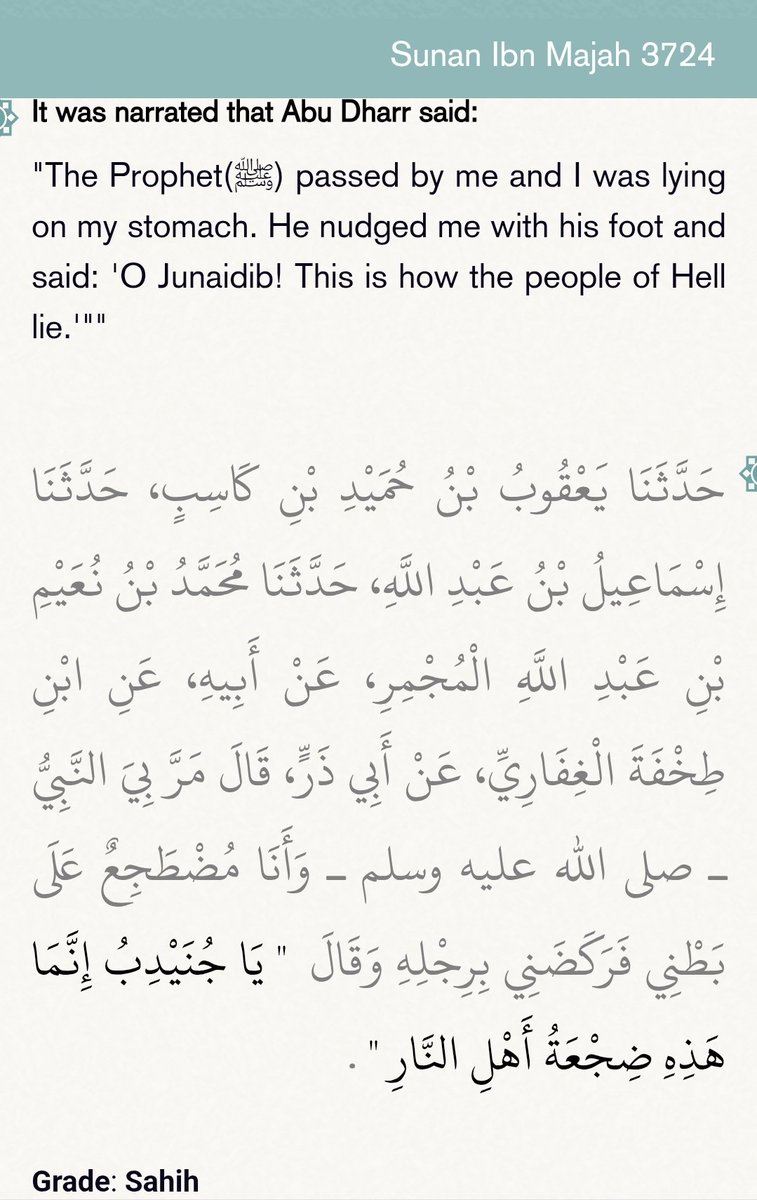 Sunan Ibn Majah 3724
It was narrated that Abu Dharr said:
"The Prophet(ﷺ) passed by me and I was lying
on my stomach. He nudged me with his foot and
said: 'O Junaidib! This is how the people of Hell
lie.'""
حَدَّثَنَا يَعْقُوبُ بْنُ حُمَيْدِ بْنِ كَاسِبٍ، حَدَّثَنَا
إِسْمَاعِيلُ بْنُ عَبْدِ اللَّهِ، حَدَّثَنَا مُحَمَّدُ بْنُ نُعَيْمِ
بْنِ عَبْدِ اللَّهِ الْمُجْمِرِ، عَنْ أَبِيهِ، عَنِ ابْنِ
طِخْفَةَ الْغِفَارِيِّ، عَنْ أَبِي ذَرٍّ، قَالَ مَرَّ بِيَ النَّبِيُّ
ـ صلى الله عليه وسلم ـ وَأَنَا مُضْطَجِعٌ عَلَى
بَطْنِي فَرَكَضَنِي بِرِجْلِهِ وَقَالَ " يَا جُنَيْدِبُ إِنَّمَا
هَذِهِ ضِجْعَةُ أَهْلِ النَّارِ " .
Grade: Sahih